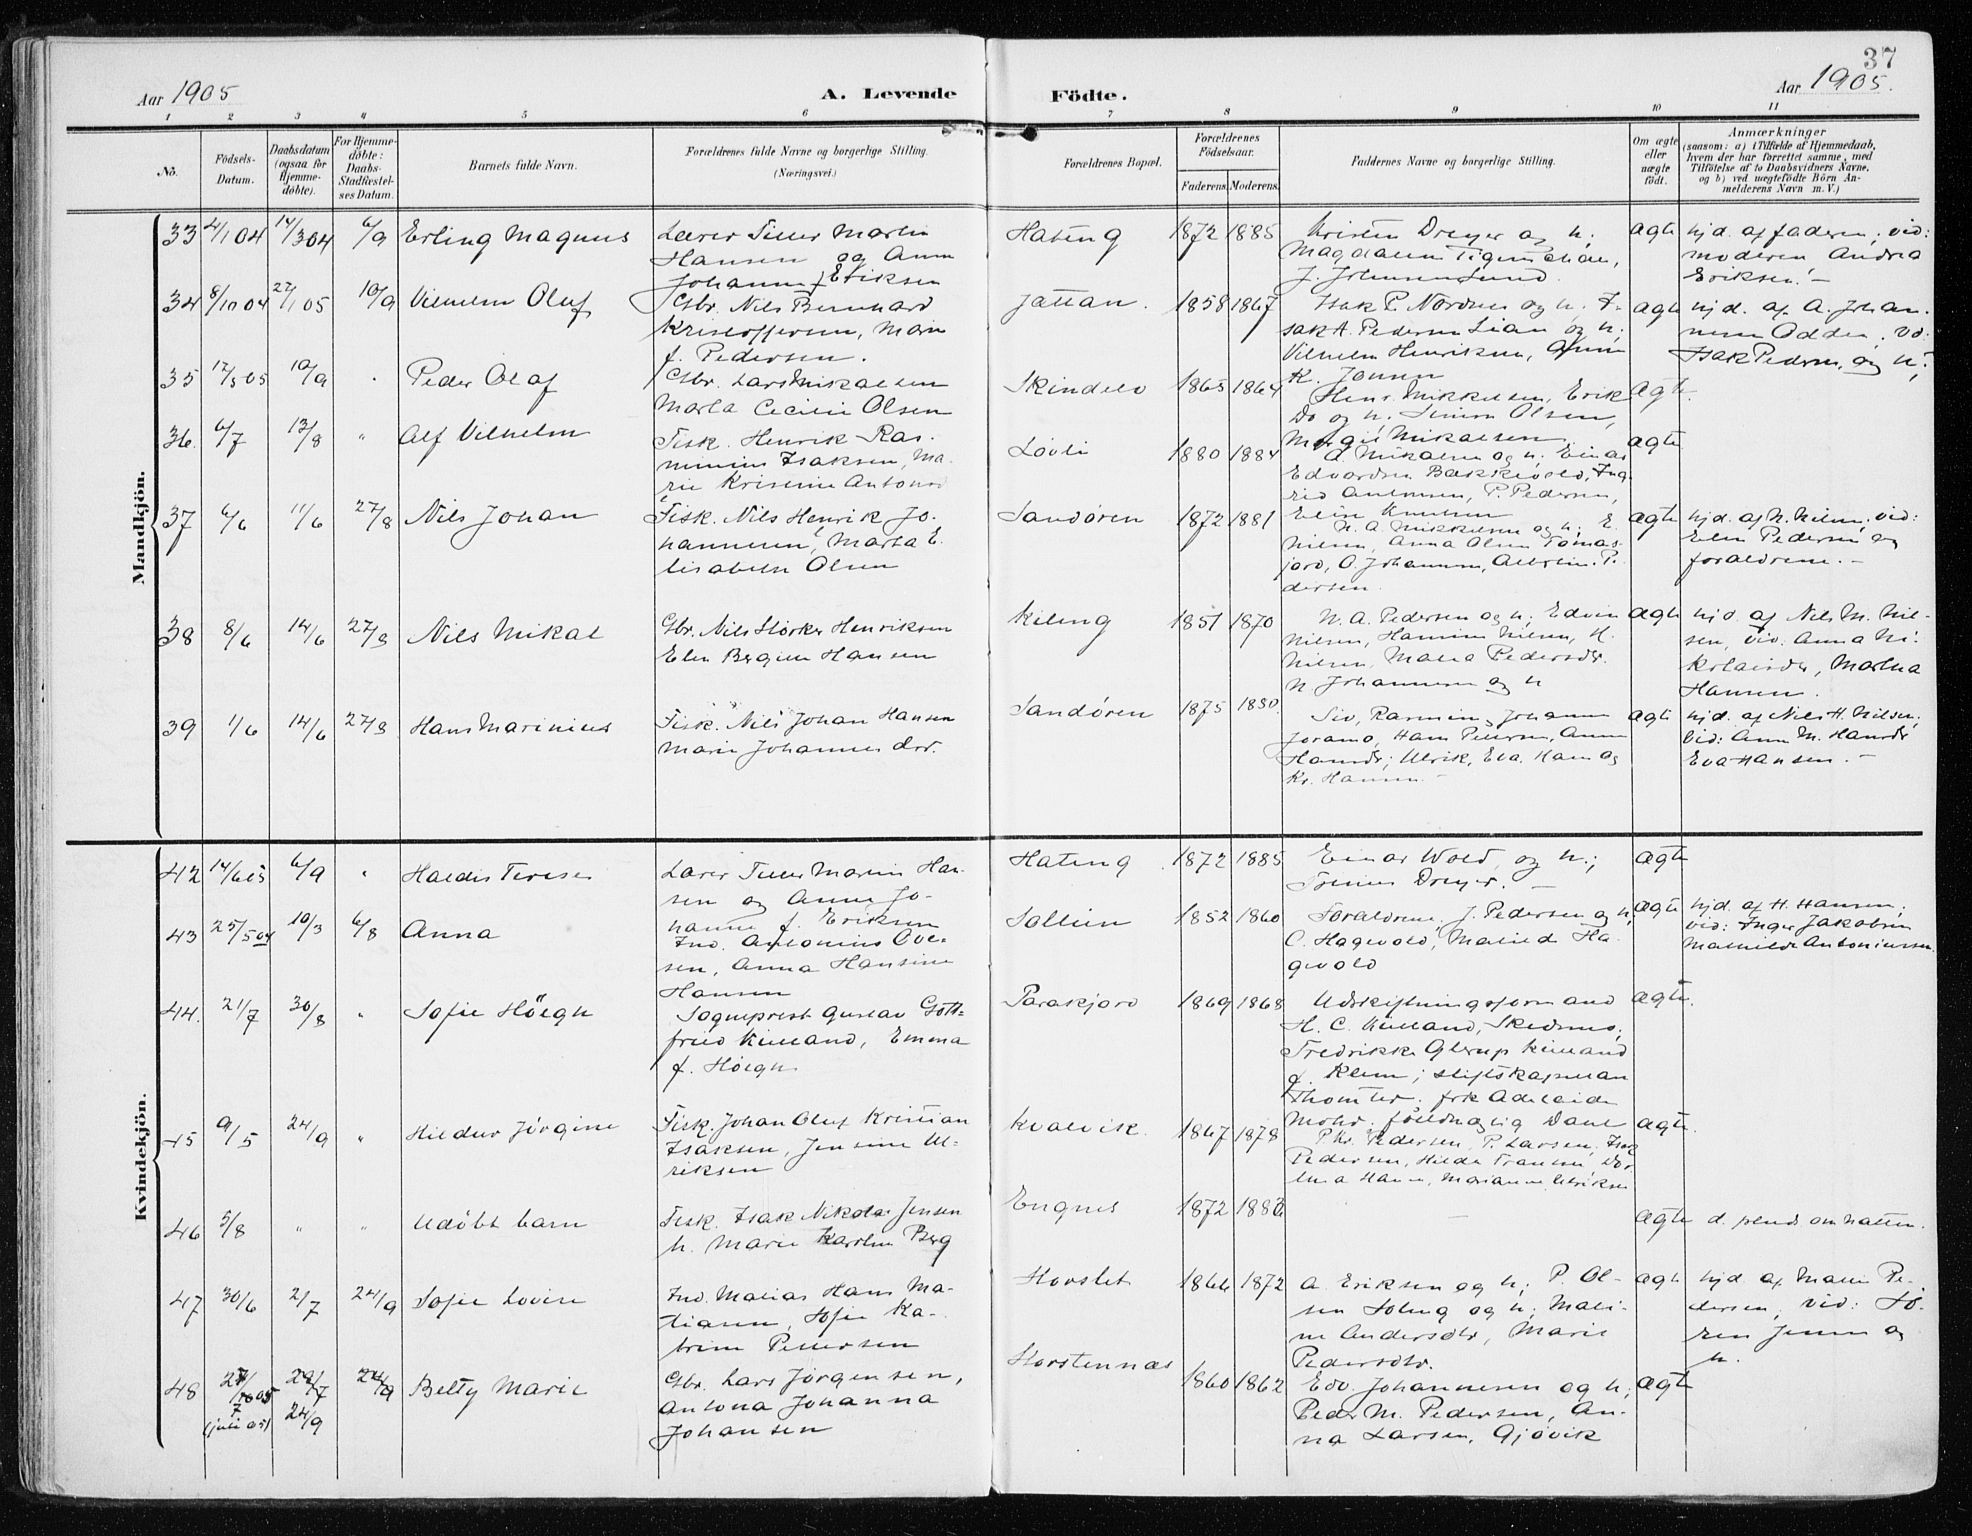 37
Aar 1905
A. Levende
Födte.
Aar 1905.
1 2 3 4 5 6 7 8 9 10 11
No.
Födsels-
Datum.
Daabsdatum
(ogsaa for
Hjemme-
döbte).
For Hjemme-
döbte:
Daabs-
Stadfæstel-
ses Datum.
Barnets fulde Navn.
Forældrenes fulde Navne og borgerlige Stilling.
(Næringsvei.)
Forældrenes Bopæl.
Forældrenes
Födselsaar.
Faderens. Moderens.
Faddernes Navne og borgerlige Stilling.
Om ægte
eller
uægte
födt.
Anmærkninger
(saasom: a) i Tilfælde af Hjemmedaab,
hvem der har forrettet samme, med
Tilföielse af to Daabsvidners Navne,
og b) ved uægtefödte Börn An-
melderens Navn m. V.)
Mandkjön.
33 4/1 04 14/3 04 6/9 Erling Magnus
Lærer Tiller Martin
Hansen og Anna
Johanne f Eriksen
Hateng 1872 1885
Kristen Dreyer og h;
ægte
hjd. af faderen; vid:
moderen Andrea
Eriksen. -
34 8/10 04 27/1 05 10/9 Vilhelm Oluf
Gbr. Nils Bernhard
Kristoffersen, Maria
f. Pedersen.
Jattan. 1858 1867
Isak P. Nordnes og h. I-
sak A. Pedersen Lian og h.
Vilhelm Henriksen, Anna
K. Jensen
ægte
hjd. af A. Johan-
nesen Odden. Vid:
Isak Pedersen og h;
35 17/5 05 10/9 Peder Olaf
Gbr. Lars Mikalsen
Marta Cecilie Olsen
Skindelv 1865 1864
Henr. Mikkelsen, Erik
Do og h. Simon Olsen,
Margit Mikalsen
ægte.
36. 6/7 13/8 " Alf Vilhelm
Fisk. Henrik Ras-
minius Isaksen, Ma-
rie Kristine Antons
Løvli 1880 1884
A Mikalsen og h. Einar
Edvardsen Bakkevold, Ing-
rid Antonsen, P. Pedersen,
Elin Knutsen
ægte
37 6/6 11/6 27/8 Nils Johan
Fisk. Nils Henrik Jo-
hannesen, Marta E-
lisabeth Olsen
Sandøren 1872 1881
N. A. Mikkelsen og h; E.
Nilsen, Anna Olsen Tomas-
jord, O. Johannesen, Albertin. P.
dersen.
ægte
hjd. af N. Nilsen, vid:
Elen Pedersen og
forældrene. -
38 8/6 14/6 27/8 Nils Mikal
Gbr. Nils Størker Henriksen
Elen Bergitte Hansen
Kileng 1851 1870
N. A. Pedersen og h; Edvin
Nilsen, Hansine Nilsen, H.
Nilsen, Malea Pedersdr.
N Johannesen og h
ægte
hjd. af Nils M. Nil-
sen, vid. Anna Ni-
kolaisdr, Martha
Hansen.
39 1/6 14/6 27/8 Hans Marinius
Fisk. Nils Johan Hansen
Marie Johannesdtr.
Sandøren 1875 1880.
Siv, Rasmine, Johanne
Joramo, Hans Petersen, Anna
Hansdr; Ulrik, Eva, Hans og
Kr. Hansen -
ægte
hjd. af Nils H. Nilsen;
Vid: Anna M. Hansdr
Eva Hansen. -
Kvindekjön.
42 14/6 05 6/9 " Haldis Terese
Lærer Tiller Martin Han-
sen og Anna Jo-
hanne f. Eriksen
Hateng 1872 1885
Einar Wold, og h.;
Dreyer. -
ægte
43 25/5 04 10/3 6/8 Anna
Ind. Antonius Ove-
sen, Anna Hansine
Hansen
Sollien 1852 1860
Forældrene, J. Pedersen og h,
C. Hagevold, Matild Ha-
gevold
ægte
hjd. af H. Hansen;
vid: Inger Jakobsen
Mathilde Antoniussen.
44. 21/7 30/8 " Sofie Höegh
Sogneprest Gustav Gott-
fried Kielland, Emma
f. Höegh
Parakjord 1869 1868
Udskiftningsformand
H. C. Kielland, Skedsmo;
Fredrikke Glerup Kielland
f. Klem; stiftskapellan
Thomter. frk Adelaide
Mohr.
ægte.
45 9/5 24/9 " Hildur Jørgine
Fisk. Johan Oluf Kristian
Isaksen, Jensine Ul-
riksen
Kvalvik. 1867 1878
P. Kr. Pedersen, P. Larsen, Isak
Pedersen, Hilda Fransen, Dor-
thea Hans, Marianne Ulriksen
ægte.
46 5/8 " " Udøbt barn
Fisk. Isak Nikolai Jensen
h. Marie Karoline Berg
Engnes 1872 1886
-
ægte d. om natten.
47 30/6 2/7 24/9 Sofie Lovise
Ind. Matias Hans Ma-
tiassen, Sofie Ka-
trine Pettersen
Horslet 1866 1872
A. Eriksen og h; P. Ol-
sen Soleng og h; Mali-
ne Andersdtr, Marie
Pedersdtr.
ægte
hjd. af Marie Pe-
dersen, vid: Sø-
ren Jensen og
h.
48 27/7 05 (juli 05) 29/7 24/9 24/9 Betty Marie
Gbr. Lars Jørgensen,
Antona Johanna
Johansen
Horstennæs 1860 1862
Edv. Johannesen og h;
Peder M. Pedersen, An-
na Larsen, Gjøvik
ægte